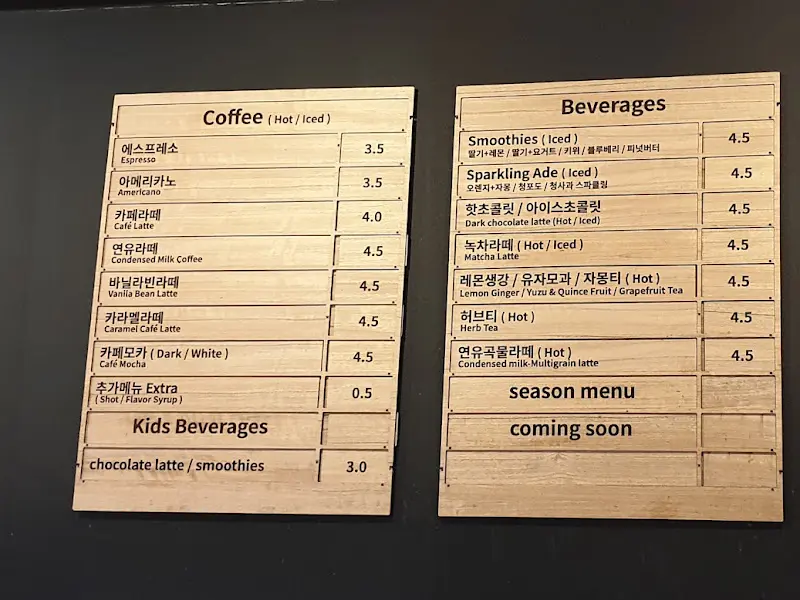 Coffee ( Hot / Iced )
에스프레소 3.5
Espresso
아메리카노 3.5
Americano
카페라떼 4.0
Café Latte
연유라떼 4.5
Condensed Milk Coffee
바닐라빈라떼 4.5
Vanila Bean Latte
카라멜라떼 4.5
Caramel Café Latte
카페모카 ( Dark / White ) 4.5
Café Mocha
추가메뉴 Extra 0.5
( Shot / Flavor Syrup )
Kids Beverages
chocolate latte / smoothies 3.0
Beverages
Smoothies ( Iced ) 4.5
딸기+레몬 / 딸기+요거트 / 키위 / 블루베리 / 피넛버터
Sparkling Ade ( Iced ) 4.5
오렌지+자몽 / 청포도 / 청사과 스파클링
핫초콜릿 / 아이스초콜릿 4.5
Dark chocolate latte (Hot / Iced)
녹차라떼 ( Hot / Iced ) 4.5
Matcha Latte
레몬생강 / 유자모과 / 자몽티 ( Hot ) 4.5
Lemon Ginger / Yuzu & Quince Fruit / Grapefruit Tea
허브티 ( Hot ) 4.5
Herb Tea
연유곡물라떼 ( Hot ) 4.5
Condensed milk-Multigrain latte
season menu
coming soon